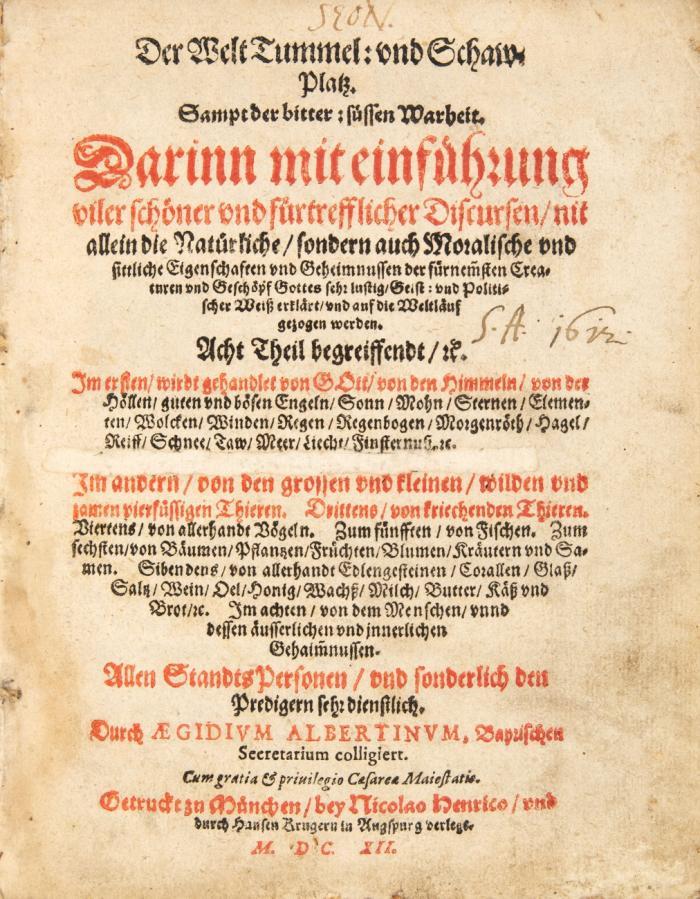 SEON.
Der Welt Tummel: vnd Schaw-
Platz.
Sampt der bitter: süssen Warheit.
Darinn mit einführung
viler schöner vnd fürtrefflicher Discursen/ nit
allein die Natürliche/ sondern auch Moralische vnd
sittliche Eigenschafften vnd Geheimnussen der fürnem̃sten Crea-
turen vnd Geschöpf Gottes sehr lustig/ Geist: vnd Politi-
scher Weiß erklärt/ vnd auf die Weltläuf
gezogen werden.
S. A. 1612.
Acht Theil begreiffendt/ ꝛc.
Im ersten/ wirdt gehandlet von GOtt/ von den Himmeln/ von der
Höllen/ guten vnd bösen Engeln/ Sonn/ Mohn/ Sternen/ Elemen-
ten/ Wolcken/ Winden/ Regen/ Regenbogen/ Morgenröth/ Hagel/
Reiff/ Schnee/ Taw/ Meer/ Liecht/ Finsternuß/ ꝛc.
Im andern/ von den grossen vnd kleinen/ wilden vnd
zamen vierfüssigen Thieren. Drittens/ von kriechenden Thieren.
Viertens/ von allerhandt Vögeln. Zum fünfften/ von Fischen. Zum
sechsten/ von Bäumen/ Pflantzen/ Früchten/ Blumen/ Kräutern vnd Sa-
men. Sibendens/ von allerhandt Edlengesteinen/ Corallen/ Glaß/
Saltz/ Wein/ Oel/ Honig/ Wachß/ Milch/ Butter/ Käß vnd
Brot/ ꝛc. Im achten/ von dem Menschen/ vnnd
dessen äusserlichen vnd jnnerlichen
Gehaim̃nussen.
Allen Standts Personen/ vnd sonderlich den
Predigern sehr dienstlich.
Durch ÆGIDIVM ALBERTINVM, Bayrischen
Secretarium colligiert.
Cum gratia & priuilegio Cæsareæ Maiestatis.
Getruckt zu München/ bey Nicolao Henrico/ vnd
durch Hansen Krugern in Augspurg verlegt.
M. D C. XII.